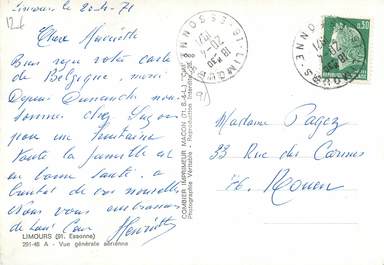 Limours le 20-4-71
12€
Chère Henriette
Bien reçu votre carte
de Belgique, merci
Depuis Dimanche nous
sommes chez
pour une
toute la famille est
en bonne santé. a
bientot de vos nouvelles
Nous vous embrassons
de tout Cœur
Henriette
LIMOURS (91. Essonne)
291-48 A - Vue générale aérienne
COMBIER IMPRIMEUR MACON (71. S.-&-L.) "CIM"
Photographie Véritable - Reproduction Interdite
91-LIMOURS
ESSONNE
18H30
20-4
1971
91
0,30
91-LIMOURS
ESSONNE
18H30
20-4
1971
Madame Pagez
33 Rue des Carmes
76. Rouen